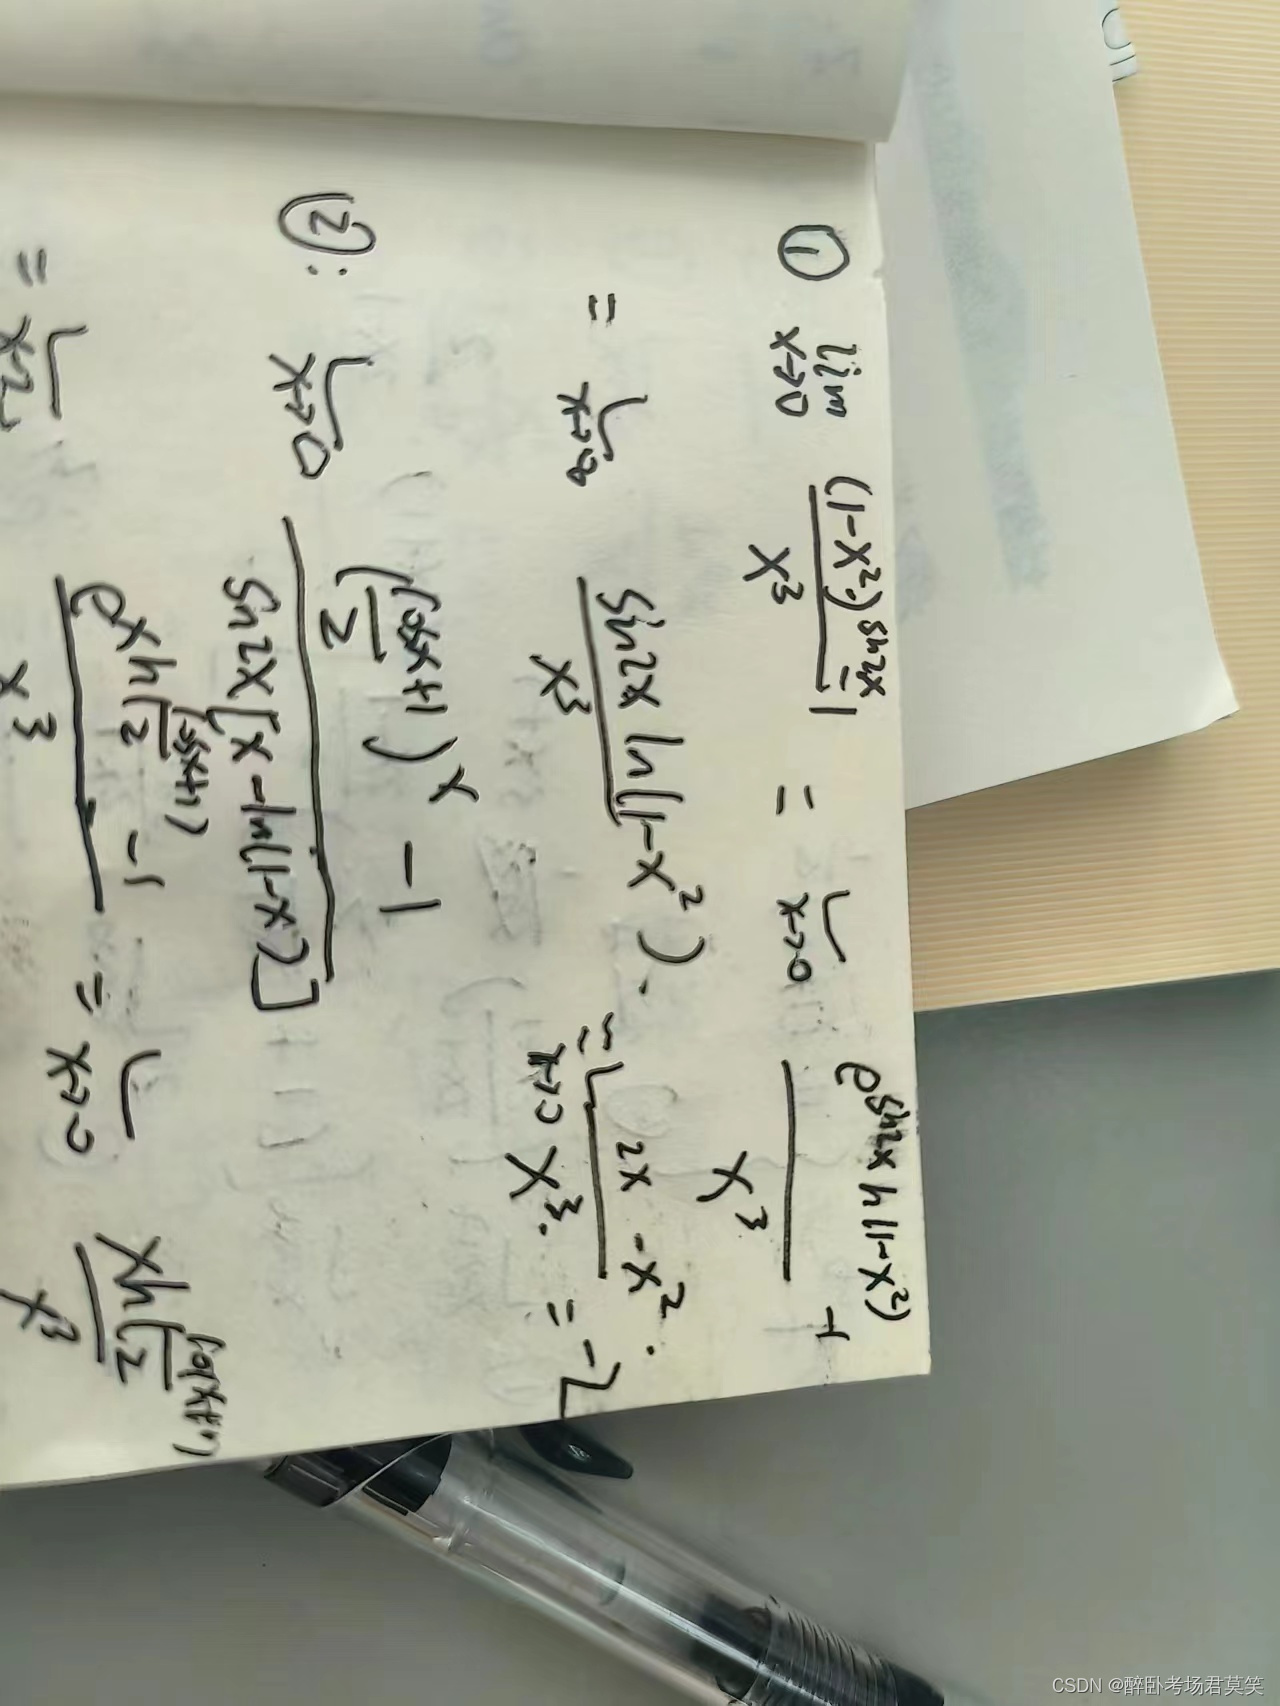 ① lim x→0 ((1-x²)^(sin2x) - 1)/x³ = lim x→0 (e^(sin2x ln(1-x²)) - 1)/x³
= lim x→0 (sin2x ln(1-x²))/x³ = lim x→0 (2x · -x²)/x³ = -2
②: lim x→0 (((cosx+1)/2)^x - 1)/(sin2x[x-ln(1-x)])
= lim (e^(x ln((cosx+1)/2)) - 1)/x³ = lim x→0 (x ln((cosx+1)/2))/x³
CSDN @醉卧考场君莫笑